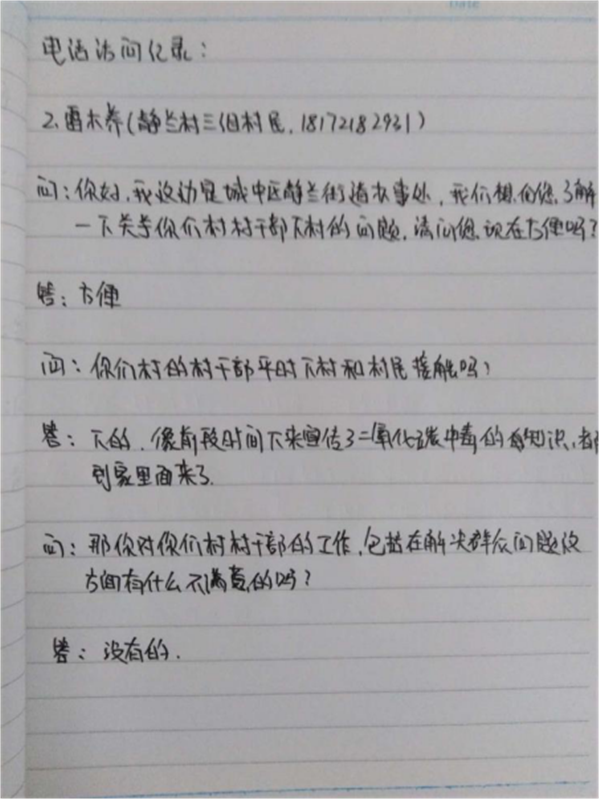 电话访问记录：
2、雷木养（静兰村三组村民，18172182931）
问：你好，我这边是城中区静兰街道办事处，我们想向您了解
一下关于你们村村干部下村的问题，请问您现在方便吗？
答：方便
问：你们村的村干部平时下村和村民接触吗？
答：下的，像前段时间下来宣传了二氧化碳中毒的知识，都
到家里面来了.
问：那你对你们村村干部的工作，包括在解决群众问题这
方面有什么不满意的吗？
答：没有的.